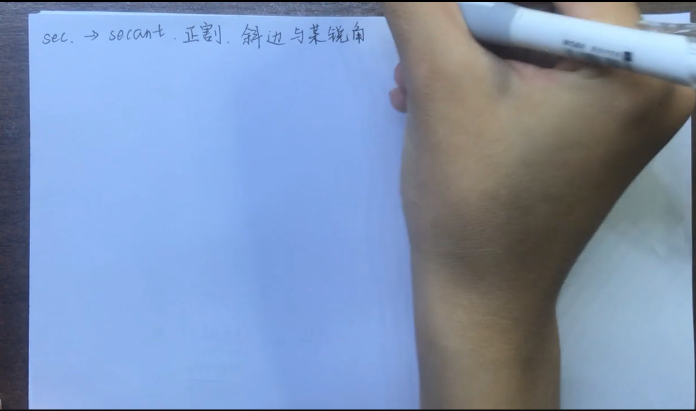 sec. → secant. 正割. 斜边与某锐角